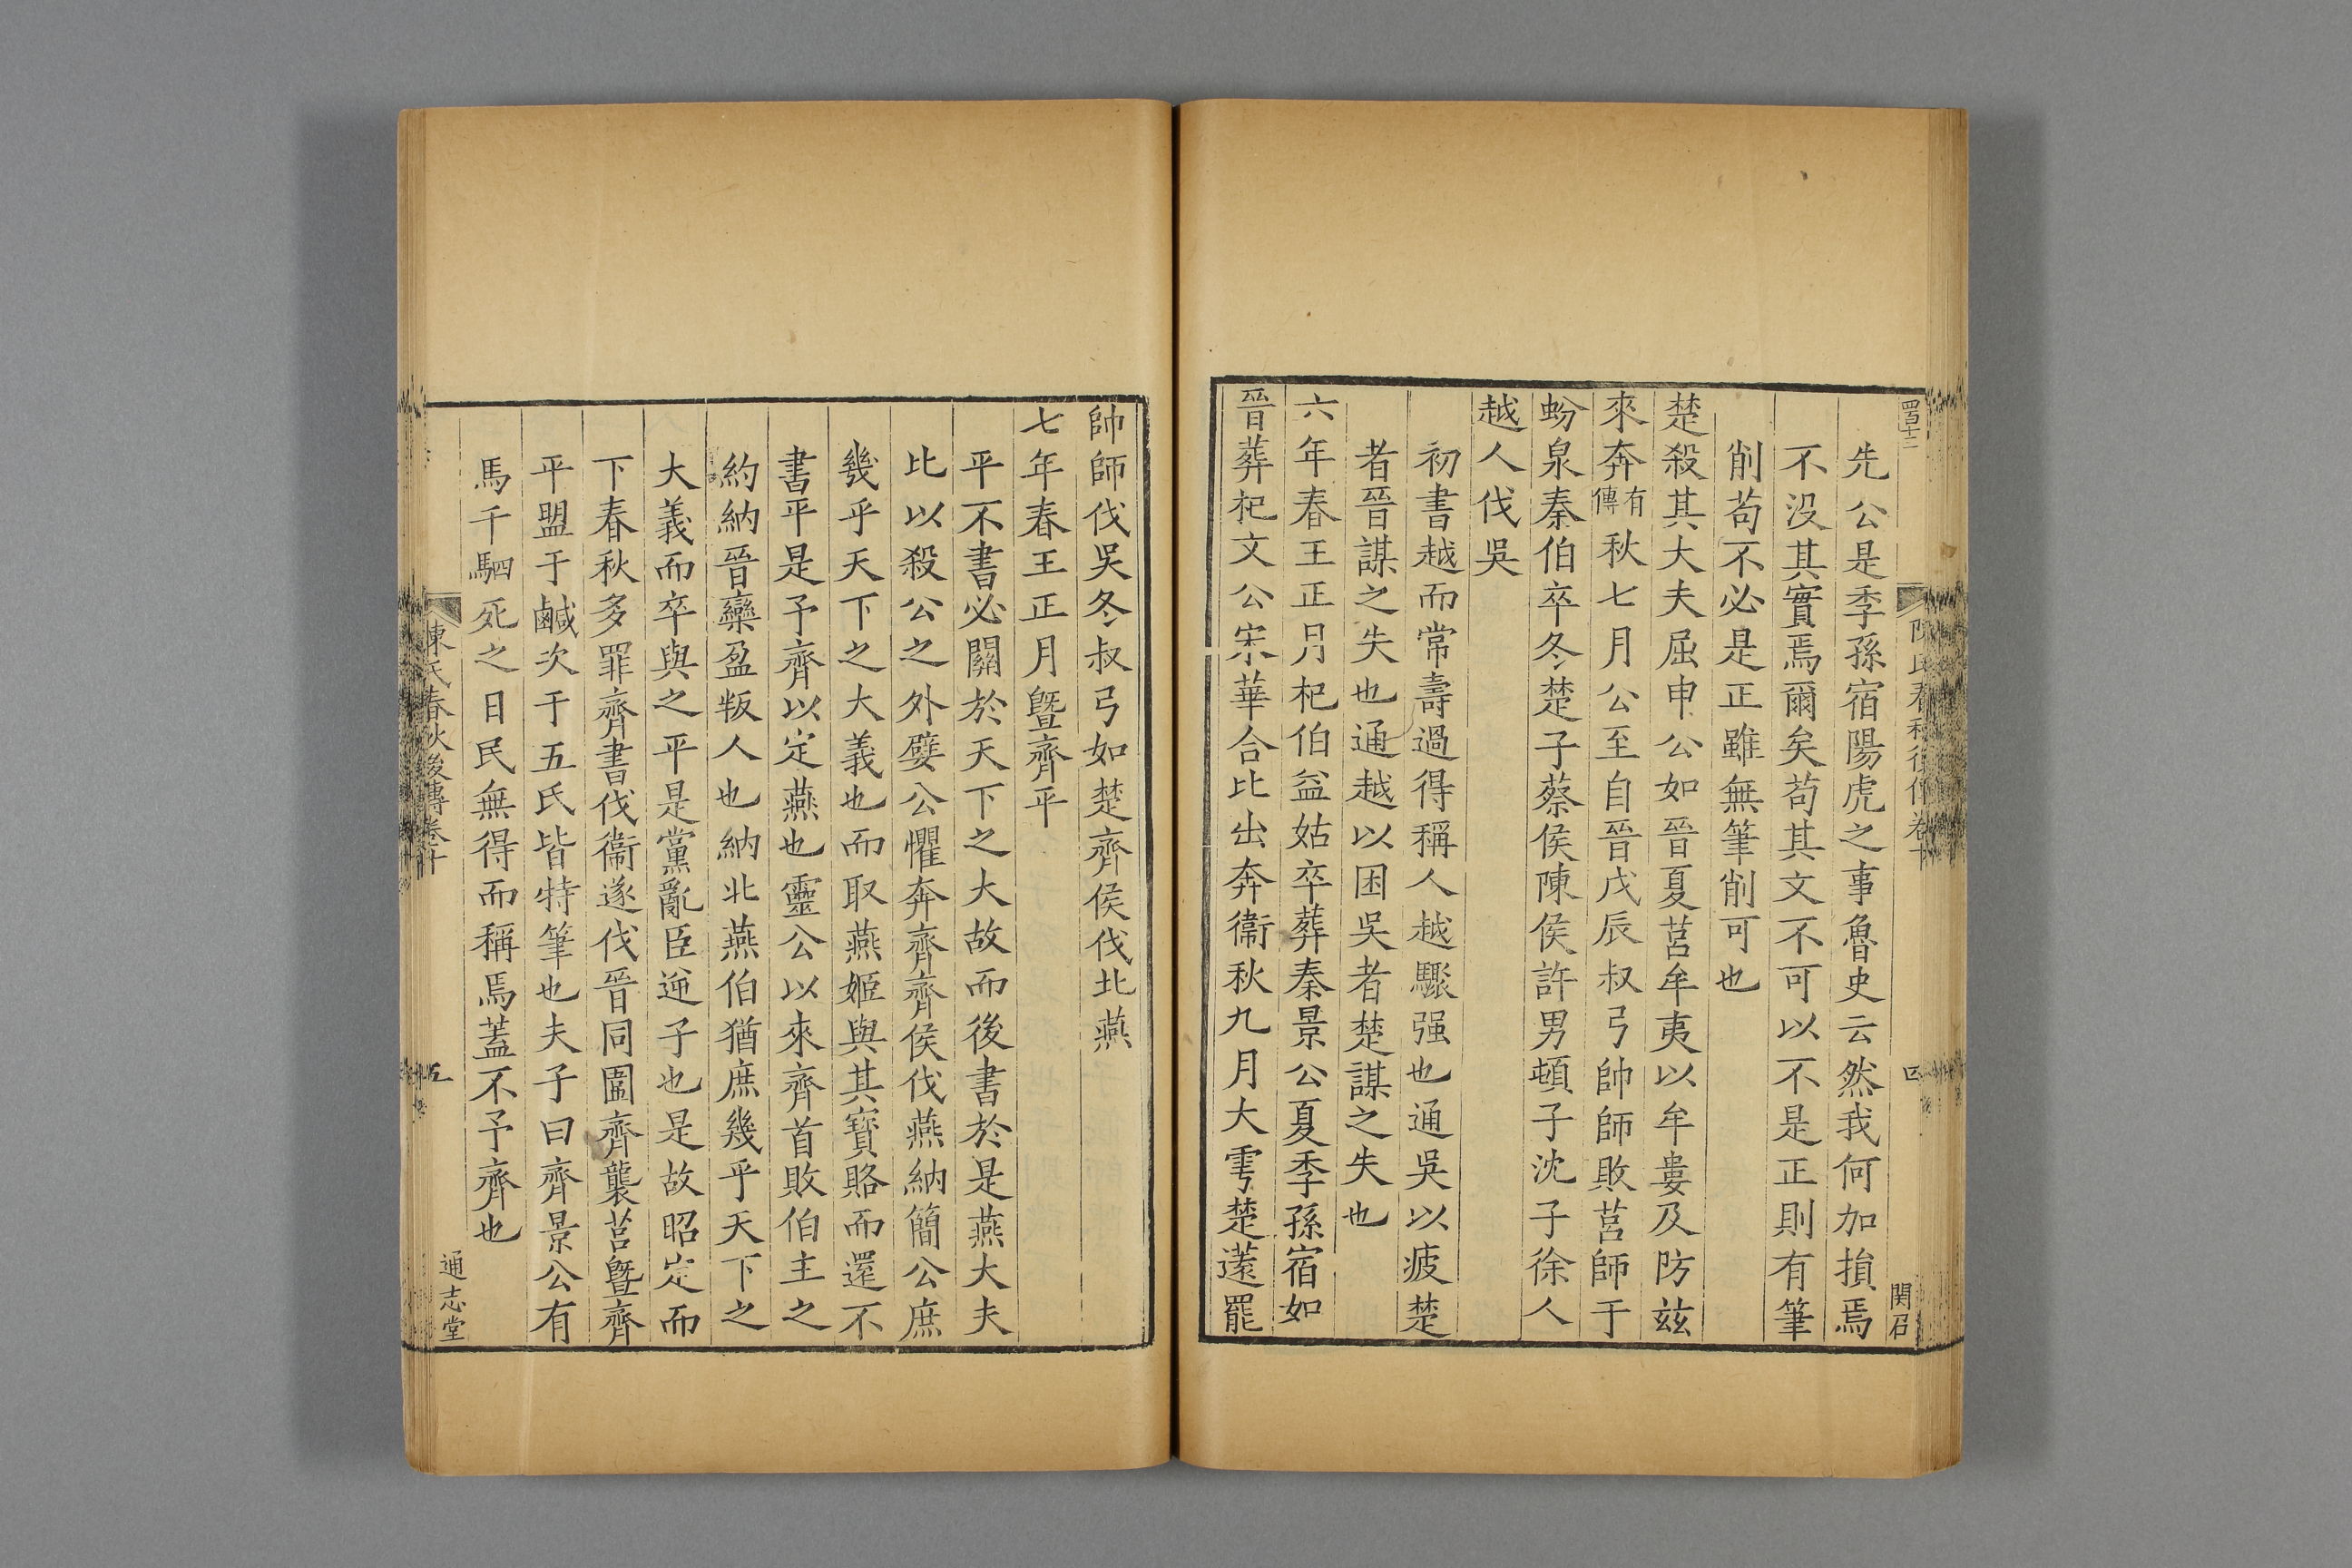 四百十二
先公是季孫宿陽虎之事魯史云然我何加損焉
不没其實焉爾矣苟其文不可以不是正則有筆
削苟不必是正雖無筆削可也
楚殺其大夫屈申公如晉夏莒牟夷以牟婁及防玆
來奔有傳秋七月公至自晉戊辰叔弓帥師敗莒師于
蚡泉秦伯卒冬楚子蔡侯陳侯許男頓子沈子徐人
越人伐吳
初書越而常壽過得稱人越驟强也通吳以疲楚
者晉謀之失也通越以困吳者楚謀之失也
六年春王正月杞伯益姑卒葬秦景公夏季孫宿如
晉葬杞文公宋華合比出奔衞秋九月大雩楚薳罷
帥師伐吳冬叔弓如楚齊侯伐北燕
七年春王正月曁齊平
平不書必關於天下之大故而後書於是燕大夫
比以殺公之外嬖公懼奔齊齊侯伐燕納簡公庶
幾乎天下之大義也而取燕姬與其寳賂而還不
書平是予齊以定燕也靈公以來齊首敗伯主之
約納晉欒盈叛人也納北燕伯猶庶幾乎天下之
大義而卒與之平是黨亂臣逆子也是故昭定而
下春秋多罪齊書伐衞遂伐晉同圍齊襲莒曁齊
平盟于鹹次于五氏皆特筆也夫子曰齊景公有
馬千駟死之日民無得而稱焉蓋不予齊也
陳氏春秋後傳卷十
五
通志堂
陳氏春秋後傳卷十
四
関召